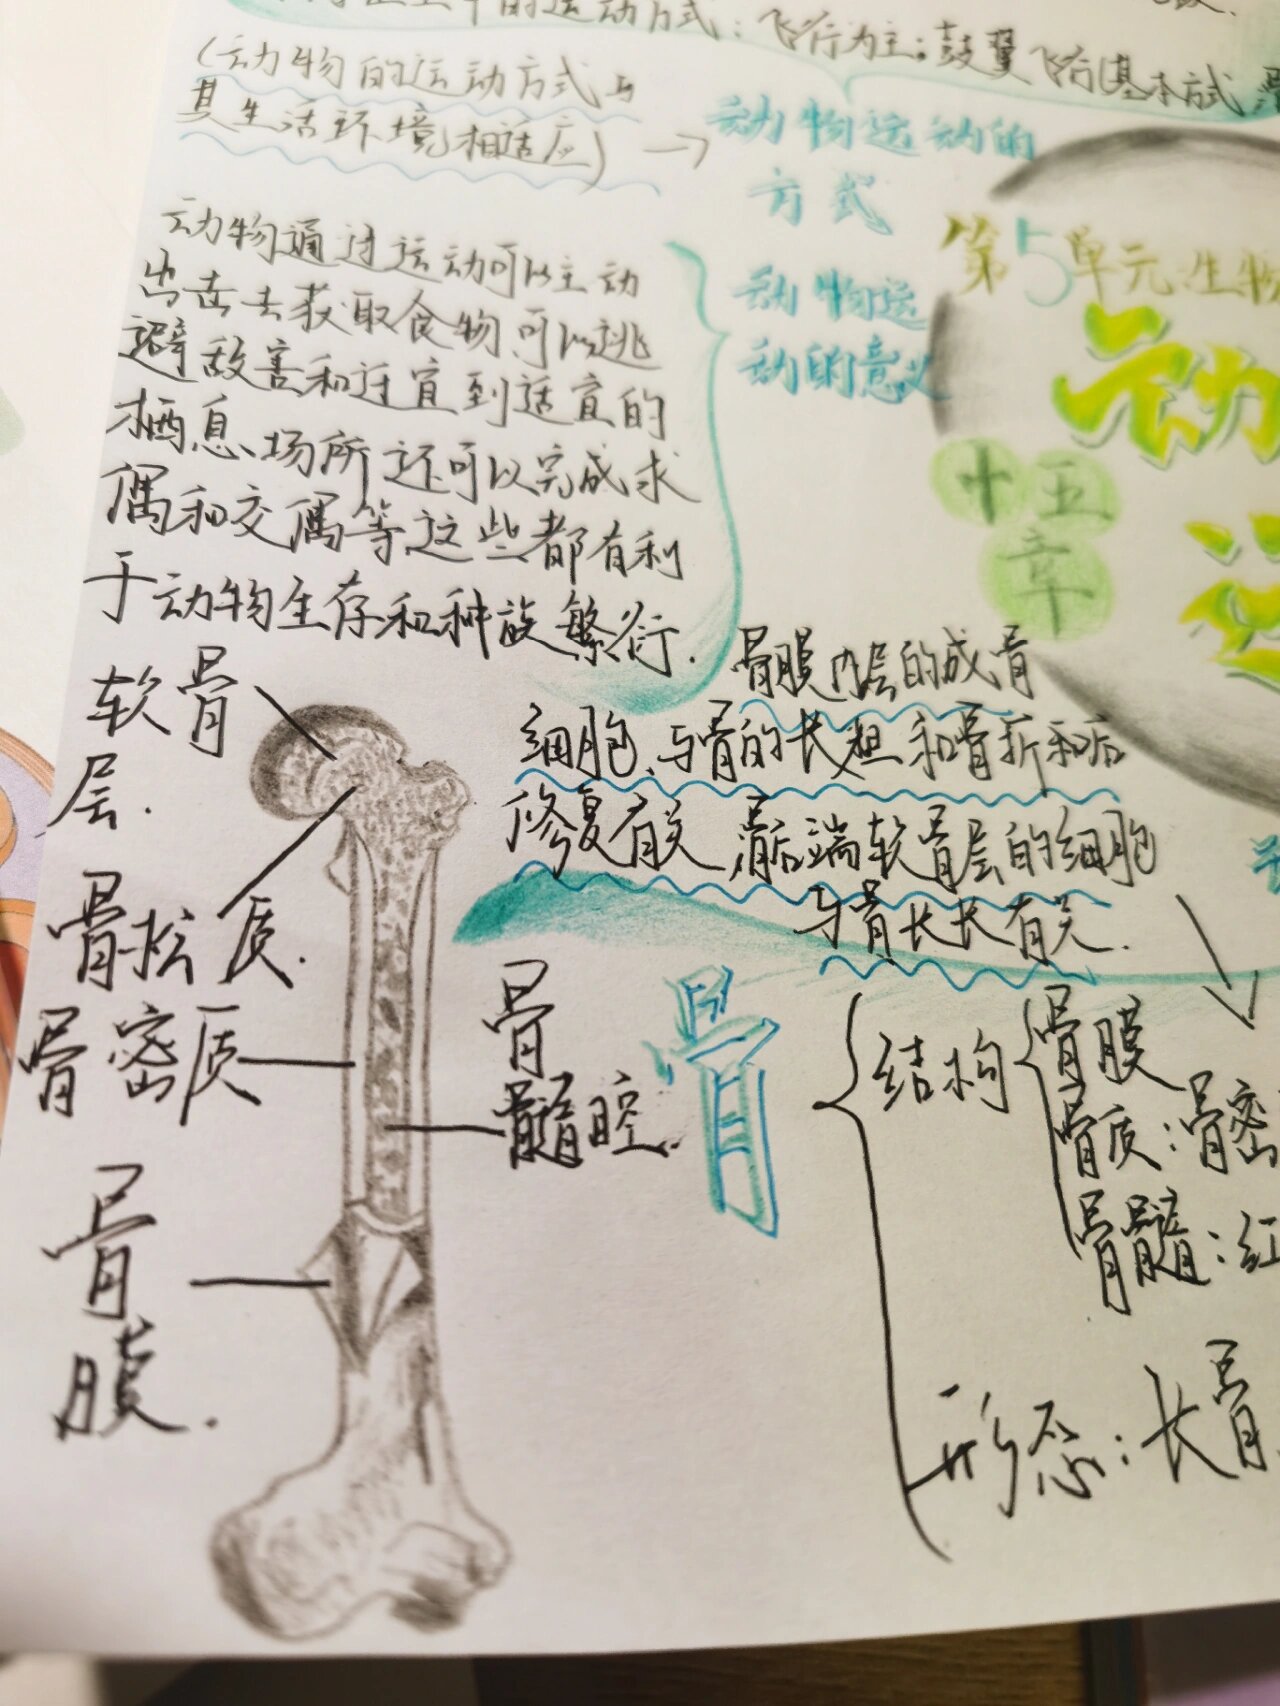 的运动方式：飞行为主；鼓翼飞行(基本方式
(动物的运动方式与
其生活环境相适应)
动物运动的
方式
动物通过运动可以主动
出击去获取食物可以逃
避敌害和迁宜到适宜的
栖息场所还可以完成求
偶和交偶等这些都有利
于动物生存和种族繁衍.
动物运
动的意义
第5单元:生物
动
十五
章
骨膜内层的成骨
细胞、与骨的长粗和骨折和后
修复有关 骨后端软骨层的细胞
与骨长长有关.
软骨
层.
骨松质.
骨密质
骨
膜.
骨
髓腔.
骨
结构
骨膜
骨质:骨密
骨髓:红
形态:长骨